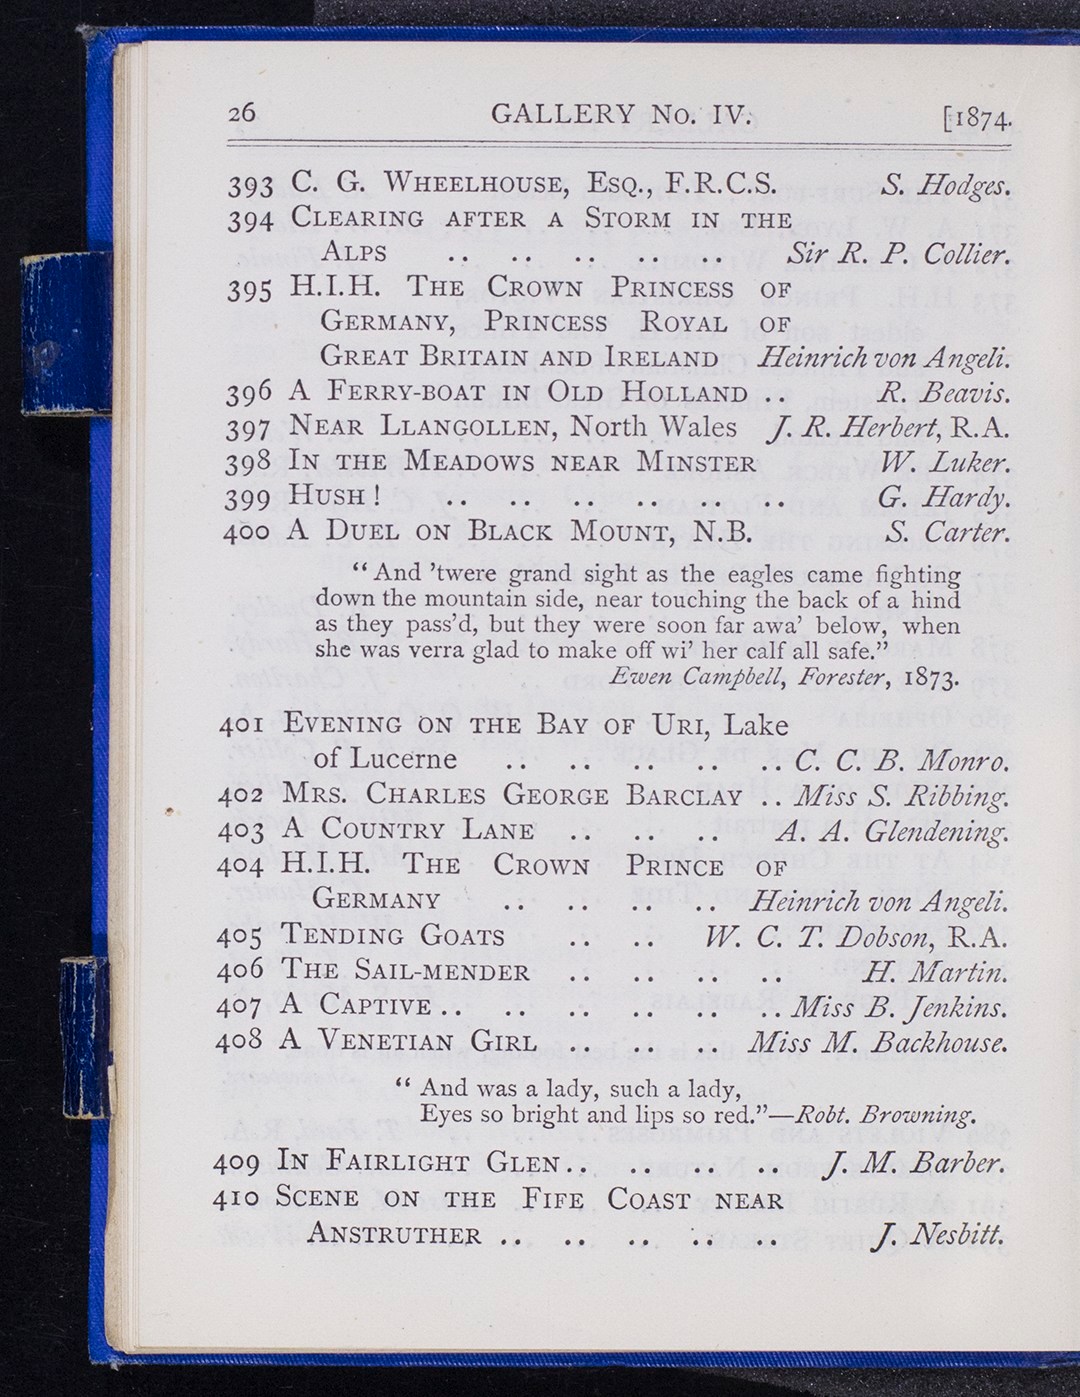 26 GALLERY No. IV. [1874.
393 C. G. WHEELHOUSE, ESQ., F.R.C.S. S. Hodges.
394 CLEARING AFTER A STORM IN THE
ALPS .. .. .. .. .. Sir R. P. Collier.
395 H.I.H. THE CROWN PRINCESS OF
GERMANY, PRINCESS ROYAL OF
GREAT BRITAIN AND IRELAND Heinrich von Angeli.
396 A FERRY-BOAT IN OLD HOLLAND .. R. Beavis.
397 NEAR LLANGOLLEN, North Wales J. R. Herbert, R.A.
398 IN THE MEADOWS NEAR MINSTER W. Luker.
399 HUSH! .. .. .. .. .. .. G. Hardy.
400 A DUEL ON BLACK MOUNT, N.B. S. Carter.
“And ’twere grand sight as the eagles came fighting
down the mountain side, near touching the back of a hind
as they pass’d, but they were soon far awa’ below, when
she was verra glad to make off wi’ her calf all safe.”
Ewen Campbell, Forester, 1873.
401 EVENING ON THE BAY OF URI, Lake
of Lucerne .. .. .. .. .. C. C. B. Monro.
402 MRS. CHARLES GEORGE BARCLAY .. Miss S. Ribbing.
403 A COUNTRY LANE .. .. .. A. A. Glendening.
404 H.I.H. THE CROWN PRINCE OF
GERMANY .. .. .. .. Heinrich von Angeli.
405 TENDING GOATS .. .. W. C. T. Dobson, R.A.
406 THE SAIL-MENDER .. .. .. .. H. Martin.
407 A CAPTIVE .. .. .. .. .. .. Miss B. Jenkins.
408 A VENETIAN GIRL .. .. .. Miss M. Backhouse.
“And was a lady, such a lady,
Eyes so bright and lips so red.”—Robt. Browning.
409 IN FAIRLIGHT GLEN .. .. .. .. J. M. Barber.
410 SCENE ON THE FIFE COAST NEAR
ANSTRUTHER .. .. .. .. .. J. Nesbitt.